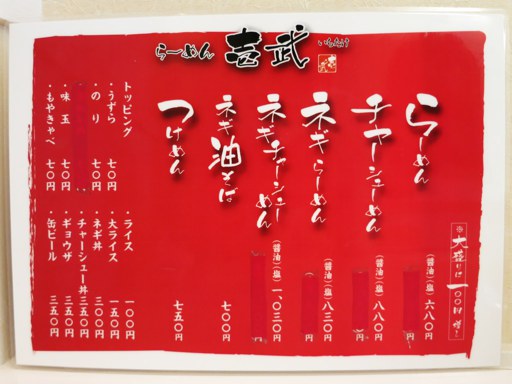 らーめん 吉武 いちたけ
※大盛りは一〇〇円増し
らーめん (醤油)(塩) 六八〇円
チャーシューめん (醤油)(塩) 八八〇円
ネギらーめん (醤油)(塩) 八三〇円
ネギチャーシューめん (醤油)(塩) 一、〇三〇円
ネギ油そば 七〇〇円
つけめん 七五〇円
トッピング
・うずら 七〇円
・のり 七〇円
・味玉 七〇円
・もやきゃべ 七〇円
・ライス 一〇〇円
・大ライス 一五〇円
・ネギ丼 三〇〇円
・チャーシュー丼 三五〇円
・ギョウザ 三五〇円
・缶ビール 三五〇円